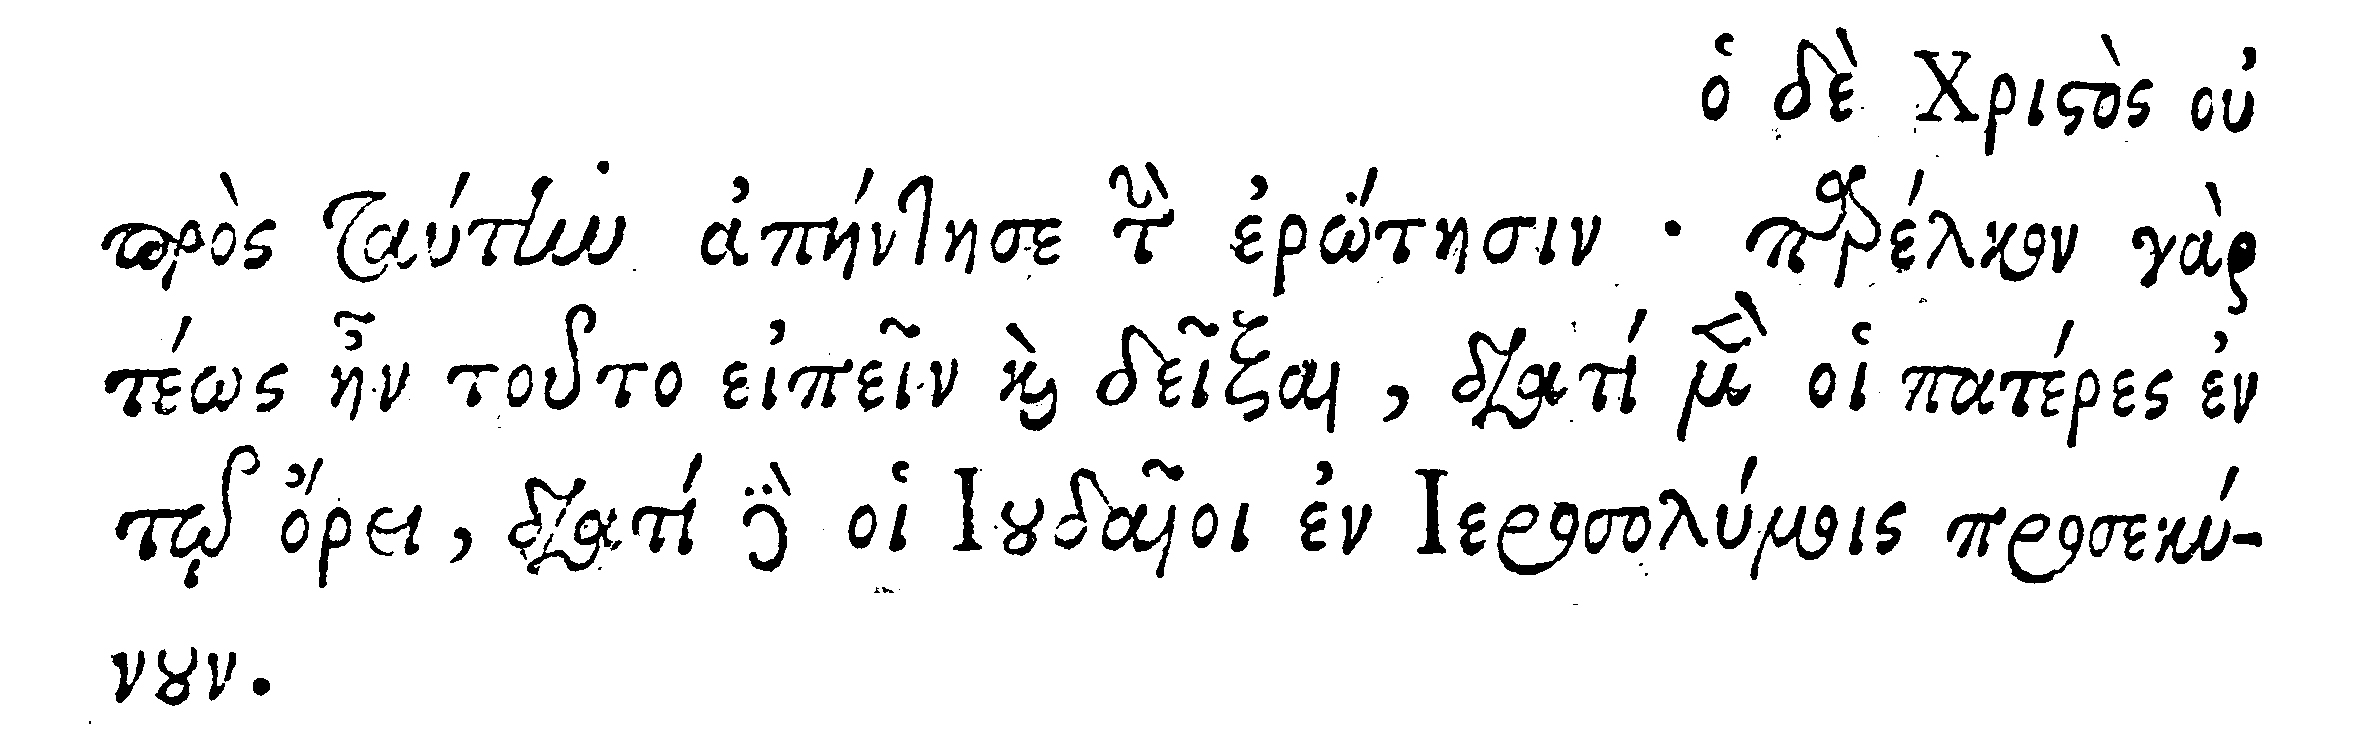 ὁ δὲ Χριστὸς οὐ
πρὸς ταύτην ἀπήντησε τὴν ἐρώτησιν · παρέλκον γὰρ
τέως ἦν τοῦτο εἰπεῖν καὶ δεῖξαι, διατί μὲν οἱ πατέρες ἐν
τῷ ὄρει, διατί δὲ οἱ Ιουδαῖοι ἐν Ιεροσολύμοις προσεκύ-
νουν.